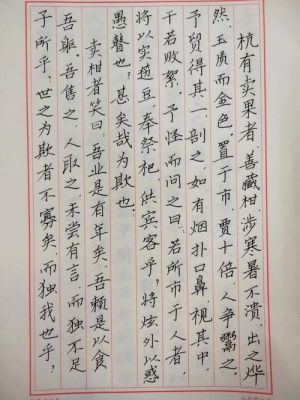 杭有卖果者，善藏柑，涉寒暑不溃。出之烨
然，玉质而金色。置于市，贾十倍，人争鬻之。
予贸得其一，剖之，如有烟扑口鼻，视其中，
干若败絮。予怪而问之曰：若所市于人者，
将以实笾豆，奉祭祀，供宾客乎？将炫外以惑
愚瞽也？甚矣哉为欺也。
卖柑者笑曰：吾业是有年矣，吾赖是以食
吾躯。吾售之，人取之，未尝有言，而独不足
子所乎？世之为欺者不寡矣，而独我也乎？